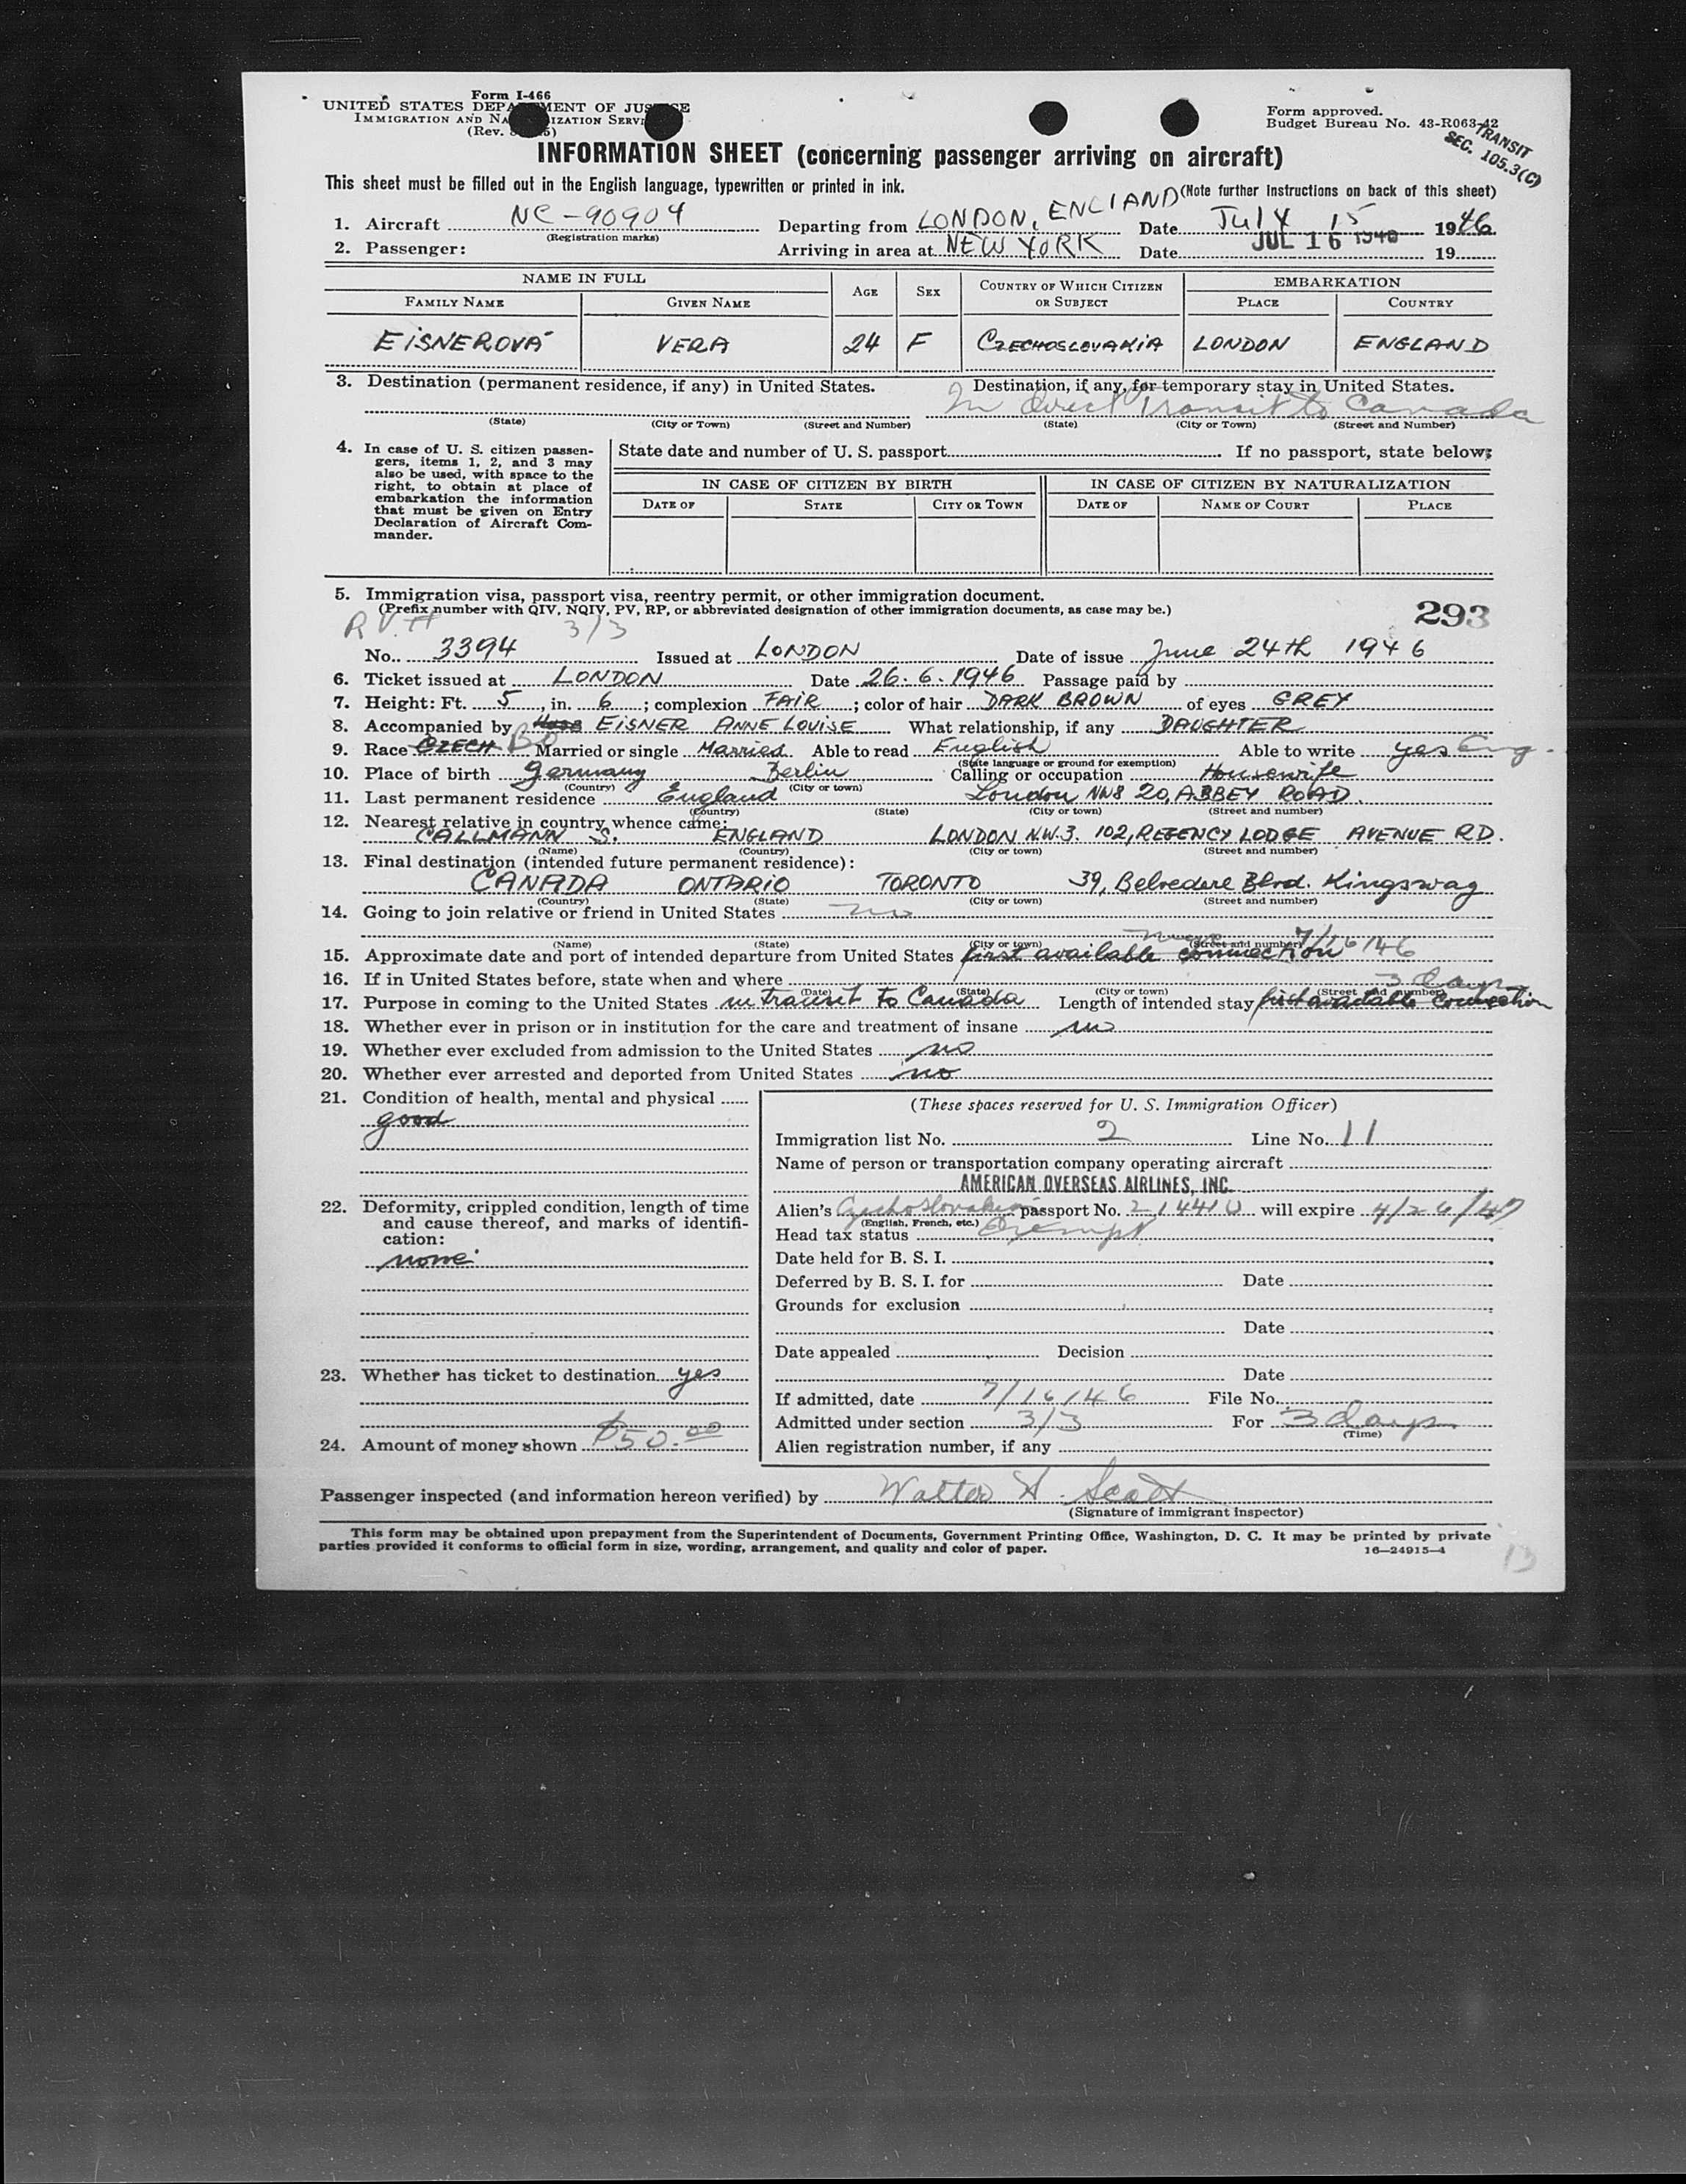 Form I-466
UNITED STATES DEPARTMENT OF JUSTICE
IMMIGRATION AND NATURALIZATION SERVICE
(Rev.
Form approved.
Budget Bureau No. 43-R063-42
TRANSIT
SEC. 105.3(C)
INFORMATION SHEET (concerning passenger arriving on aircraft)
This sheet must be filled out in the English language, typewritten or printed in ink.
(Note further instructions on back of this sheet)
1. Aircraft NC-90904 Departing from LONDON, ENGLAND Date July 15 1946
(Registration marks)
2. Passenger: Arriving in area at NEW YORK Date JUL 16 1946 19
NAME IN FULL AGE SEX COUNTRY OF WHICH CITIZEN OR SUBJECT EMBARKATION
FAMILY NAME GIVEN NAME PLACE COUNTRY
EiSNEROVÁ VERA 24 F CZECHOSLOVAKiA LONDON ENGLAND
3. Destination (permanent residence, if any) in United States. Destination, if any, for temporary stay in United States.
In direct Transit to Canada
(State) (City or Town) (Street and Number) (State) (City or Town) (Street and Number)
4. In case of U. S. citizen passengers, items 1, 2, and 3 may also be used, with space to the right, to obtain at place of embarkation the information that must be given on Entry Declaration of Aircraft Commander.
State date and number of U. S. passport If no passport, state below:
IN CASE OF CITIZEN BY BIRTH IN CASE OF CITIZEN BY NATURALIZATION
DATE OF STATE CITY OR TOWN DATE OF NAME OF COURT PLACE
5. Immigration visa, passport visa, reentry permit, or other immigration document.
(Prefix number with QIV, NQIV, PV, RP, or abbreviated designation of other immigration documents, as case may be.)
293
3/3
No. 3394 Issued at LONDON Date of issue June 24th 1946
6. Ticket issued at LONDON Date 26.6.1946 Passage paid by
7. Height: Ft. 5, in. 6; complexion FAiR; color of hair DARK BROWN of eyes GREY
8. Accompanied by EiSNER ANNE LOUiSE What relationship, if any DAUGHTER
9. Race CZECH Married or single Married Able to read English Able to write yes Eng.
(State language or ground for exemption)
10. Place of birth Germany Berlin Calling or occupation Housewife
(Country) (City or town)
11. Last permanent residence England London NW8 20, ABBEY ROAD.
(Country) (State) (City or town) (Street and number)
12. Nearest relative in country whence came:
CALLMANN S. ENGLAND LONDON N.W.3. 102, REGENCY LODGE AVENUE RD.
(Name) (Country) (City or town) (Street and number)
13. Final destination (intended future permanent residence):
CANADA ONTARIO TORONTO 39, Belvedere Blvd. Kingsway
(Country) (State) (City or town) (Street and number)
14. Going to join relative or friend in United States no
(Name) (State) (City or town) (Street and number)
7/16/46
15. Approximate date and port of intended departure from United States first available connection
16. If in United States before, state when and where
(Date) (State) (City or town) (Street and number)
3 days
17. Purpose in coming to the United States in transit to Canada Length of intended stay first available connection
18. Whether ever in prison or in institution for the care and treatment of insane no
19. Whether ever excluded from admission to the United States no
20. Whether ever arrested and deported from United States no
21. Condition of health, mental and physical
good
22. Deformity, crippled condition, length of time and cause thereof, and marks of identification:
none
23. Whether has ticket to destination yes
24. Amount of money shown $50.00
(These spaces reserved for U. S. Immigration Officer)
Immigration list No. 2 Line No. 11
Name of person or transportation company operating aircraft
AMERICAN OVERSEAS AIRLINES, INC.
Alien's Czechoslovakia passport No. 21441 will expire 4/26/47
(English, French, etc.)
Head tax status Exempt
Date held for B. S. I.
Deferred by B. S. I. for Date
Grounds for exclusion
Date
Date appealed Decision
Date
If admitted, date 7/16/46 File No.
Admitted under section 3/3 For 3 days
(Time)
Alien registration number, if any
Passenger inspected (and information hereon verified) by Walter Scott
(Signature of immigrant inspector)
This form may be obtained upon prepayment from the Superintendent of Documents, Government Printing Office, Washington, D. C. It may be printed by private
parties provided it conforms to official form in size, wording, arrangement, and quality and color of paper. 16—24915-4
13